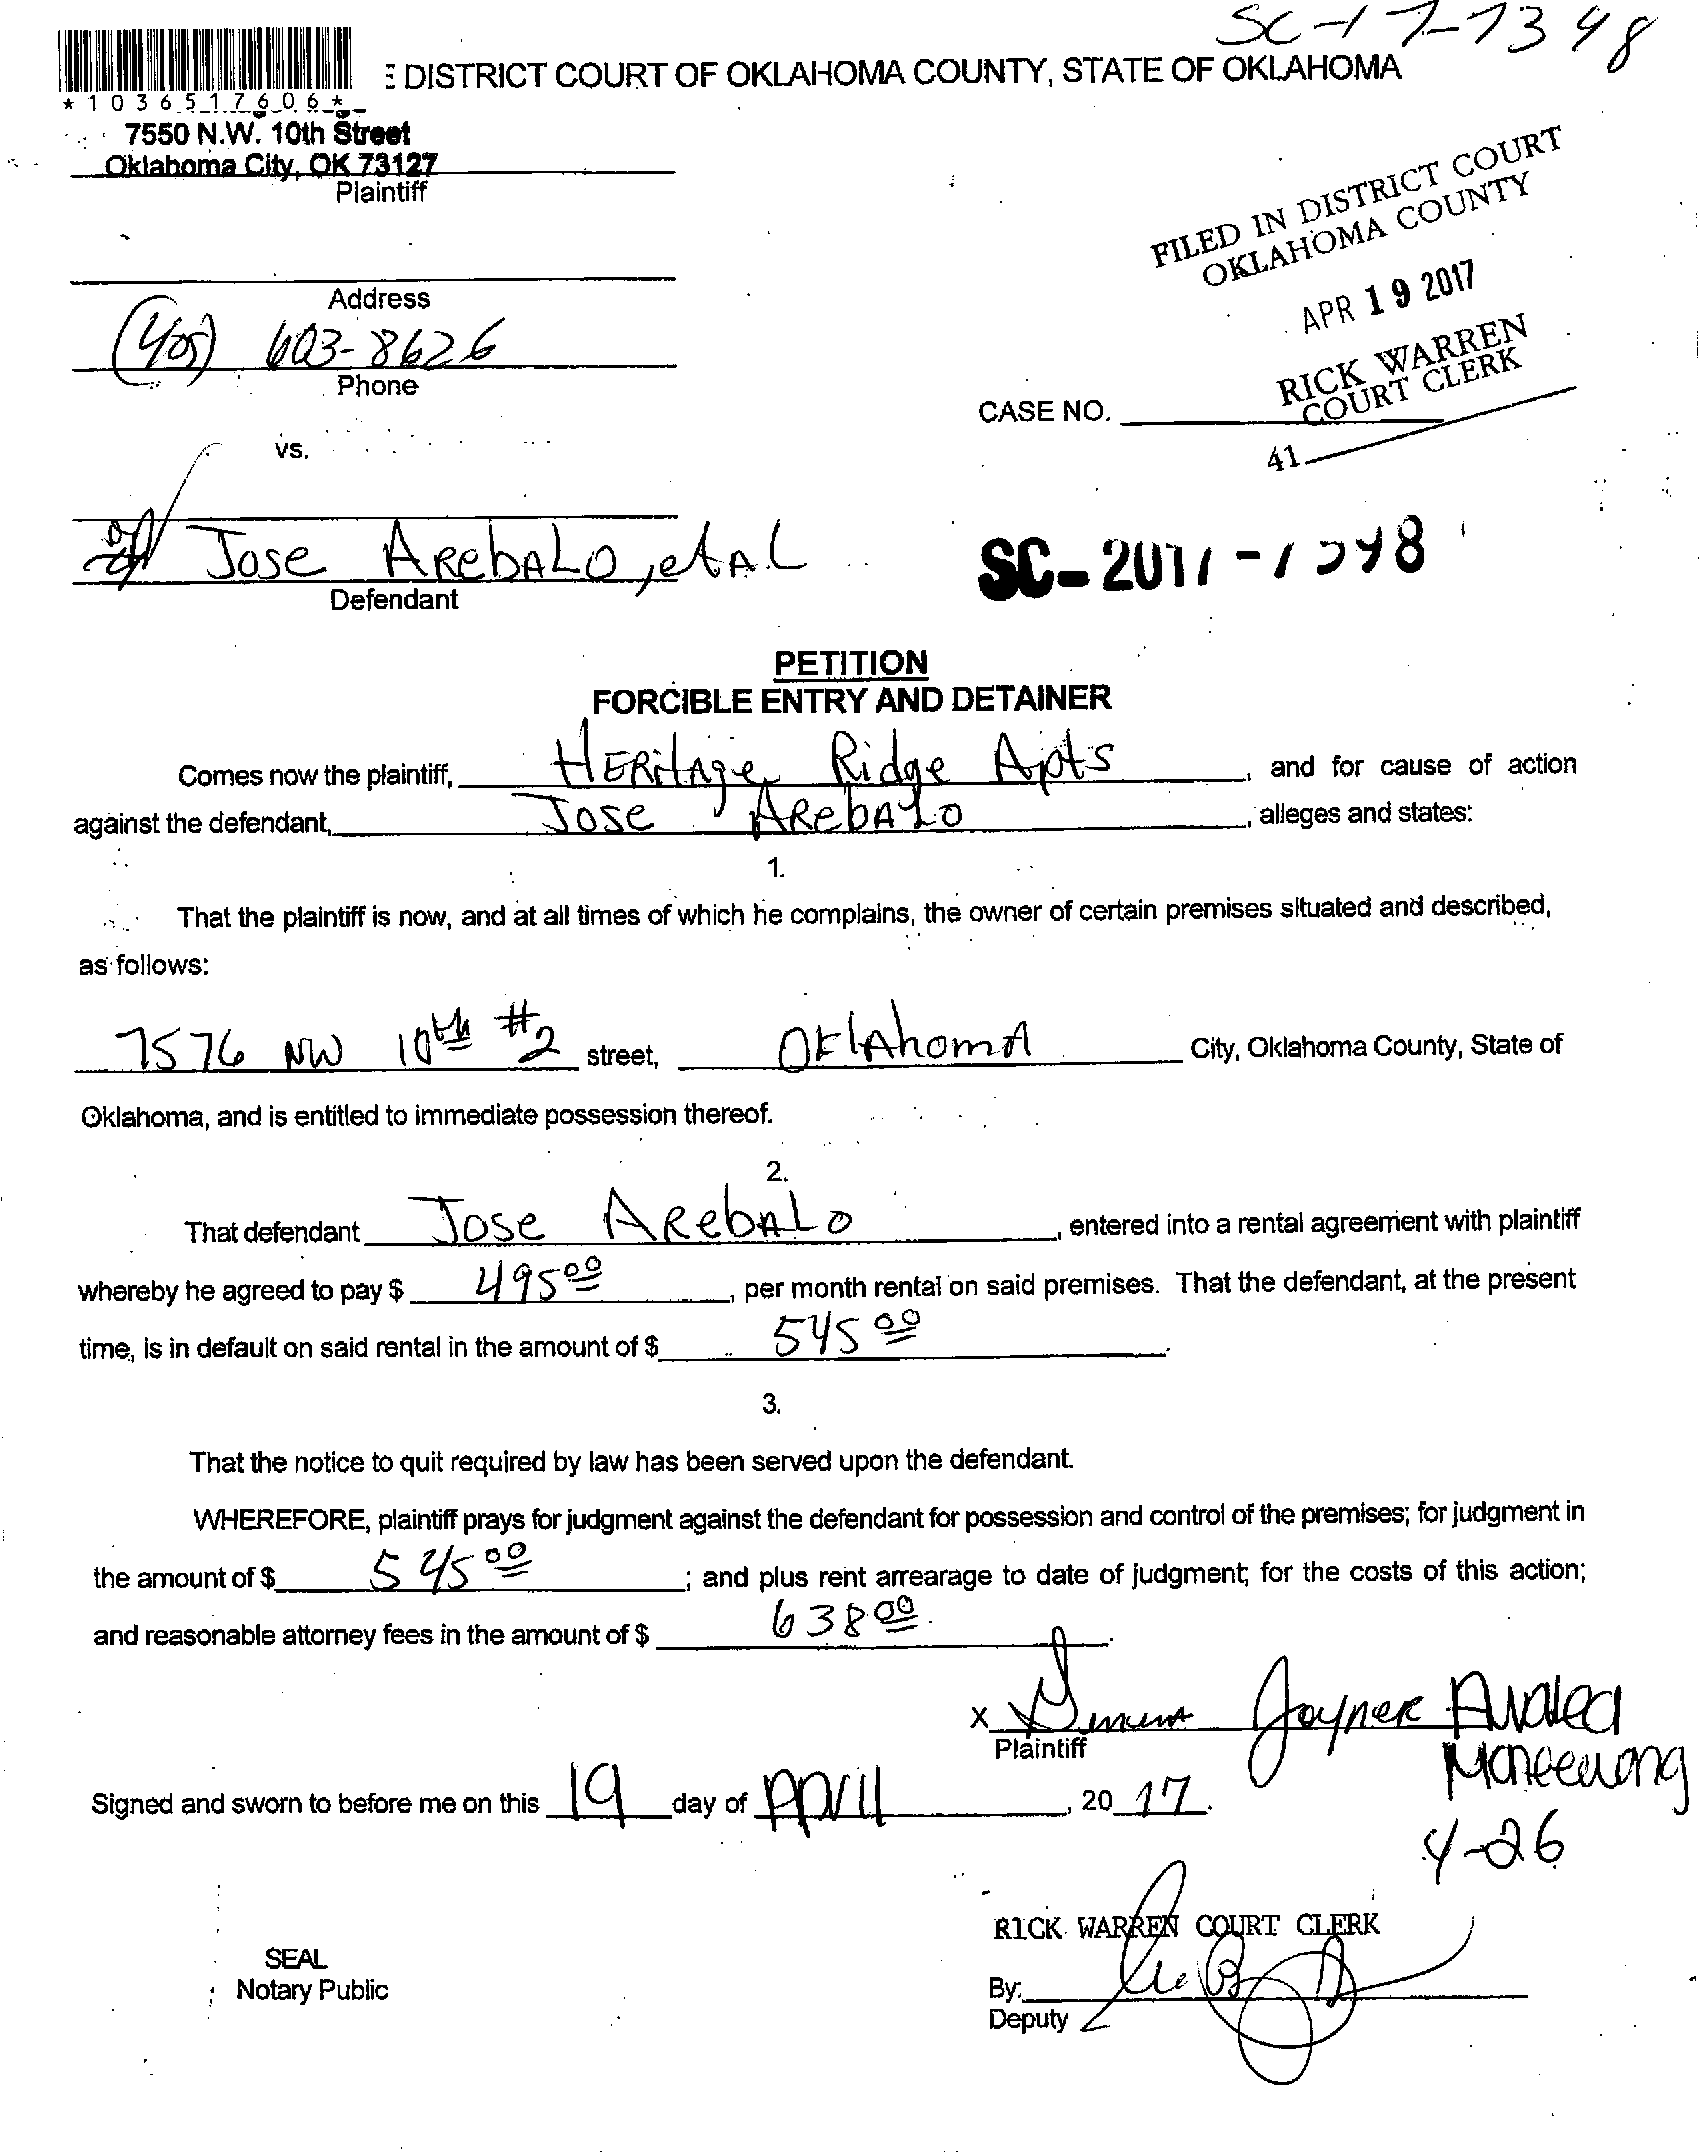 SC-17-7348
E DISTRICT COURT OF OKLAHOMA COUNTY, STATE OF OKLAHOMA
*1036517606*
7550 N.W. 10th Street
Oklahoma City, OK 73127
Plaintiff
FILED IN DISTRICT COURT
OKLAHOMA COUNTY
APR 19 2017
RICK WARREN
COURT CLERK
41
Address
(405) 603-8626
Phone
CASE NO.
vs.
Jose Arebalo, et Al
Defendant
SC-2017-7348
PETITION
FORCIBLE ENTRY AND DETAINER
Comes now the plaintiff, Heritage Ridge Apts, and for cause of action
against the defendant, Jose Arebalo, alleges and states:
1.
That the plaintiff is now, and at all times of which he complains, the owner of certain premises situated and described,
as follows:
7576 NW 10th #2 street, Oklahoma City, Oklahoma County, State of
Oklahoma, and is entitled to immediate possession thereof.
2.
That defendant Jose Arebalo, entered into a rental agreement with plaintiff
whereby he agreed to pay $ 495 00, per month rental on said premises. That the defendant, at the present
time, is in default on said rental in the amount of $ 545 00.
3.
That the notice to quit required by law has been served upon the defendant.
WHEREFORE, plaintiff prays for judgment against the defendant for possession and control of the premises; for judgment in
the amount of $ 545 00; and plus rent arrearage to date of judgment; for the costs of this action;
and reasonable attorney fees in the amount of $ 638 00.
X Joyner
Plaintiff
Signed and sworn to before me on this 19 day of April, 20 17.
4-26
RICK WARREN COURT CLERK
SEAL
Notary Public
By:
Deputy